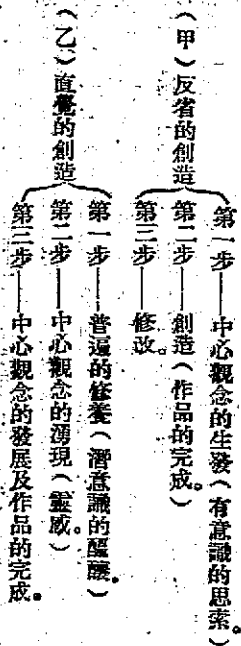 （甲）反省的創造
第一步——中心觀念的生發（有意識的思索。）
第二步——創造（作品的完成。）
第三步——修改。
（乙）直覺的創造
第一步——普遍的修養（潛意識的醞釀。）
第二步——中心觀念的湧現（靈感。）
第三步——中心觀念的發展及作品的完成。